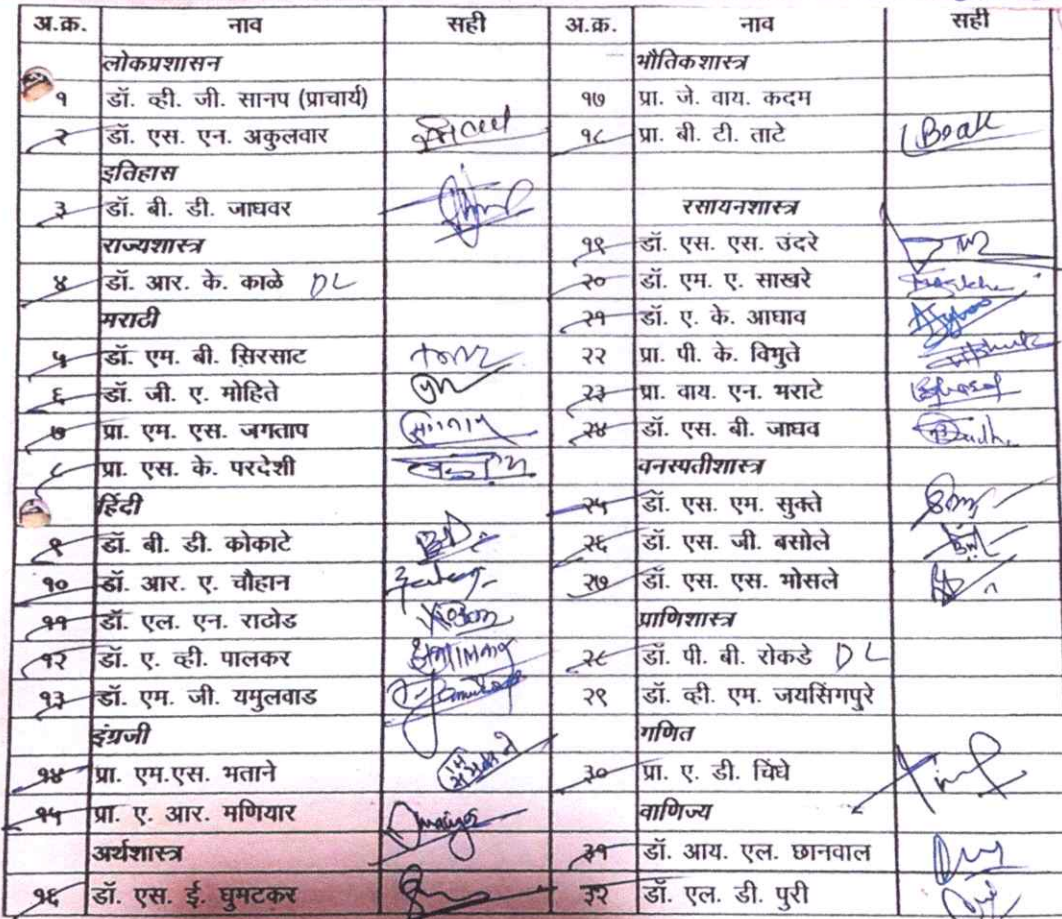 अ.क्र. नाव सही अ.क्र. नाव सही
लोकप्रशासन भौतिकशास्त्र
१ डॉ. व्ही. जी. सानप (प्राचार्य) १७ प्रा. जे. वाय. कदम
२ डॉ. एस. एन. अकुलवार १८ प्रा. बी. टी. ताटे
इतिहास
३ डॉ. बी. डी. जाधवर रसायनशास्त्र
राज्यशास्त्र १९ डॉ. एस. एस. उंदरे
४ डॉ. आर. के. काळे DL २० डॉ. एम. ए. साखरे
मराठी २१ डॉ. ए. के. आघाव
५ डॉ. एम. बी. सिरसाट २२ प्रा. पी. के. विभुते
६ डॉ. जी. ए. मोहिते २३ प्रा. वाय. एन. भराटे
७ प्रा. एम. एस. जगताप २४ डॉ. एस. बी. जाधव
८ प्रा. एस. के. परदेशी वनस्पतीशास्त्र
हिंदी २५ डॉ. एस. एम. सुक्ते
९ डॉ. बी. डी. कोकाटे २६ डॉ. एस. जी. बसोले
१० डॉ. आर. ए. चौहान २७ डॉ. एस. एस. भोसले
११ डॉ. एल. एन. राठोड प्राणिशास्त्र
१२ डॉ. ए. व्ही. पालकर २८ डॉ. पी. बी. रोकडे DL
१३ डॉ. एम. जी. यमुलवाड २९ डॉ. व्ही. एम. जयसिंगपुरे
इंग्रजी गणित
१४ प्रा. एम.एस. भताने ३० प्रा. ए. डी. चिंधे
१५ प्रा. ए. आर. मणियार वाणिज्य
अर्थशास्त्र ३१ डॉ. आय. एल. छानवाल
१६ डॉ. एस. ई. घुमटकर ३२ डॉ. एल. डी. पुरी